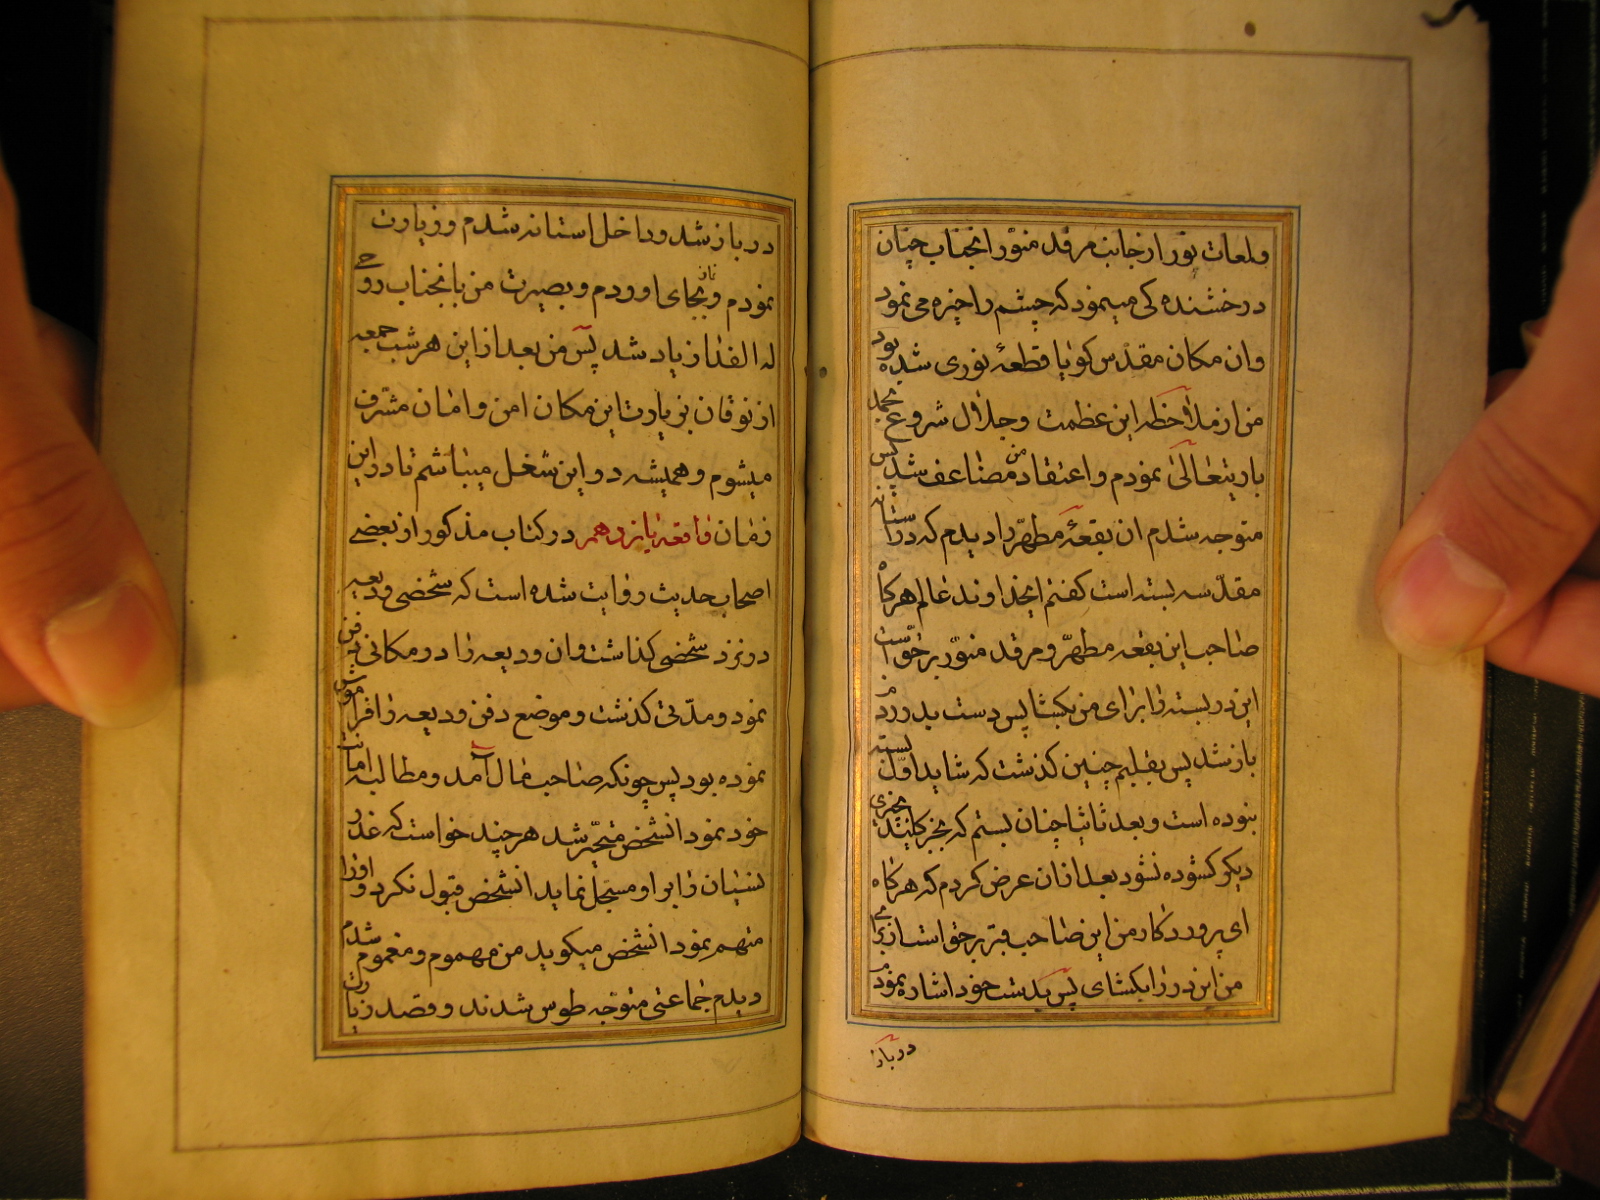 ولمعات نور از جانب مرقد منوّر انجناب چنان
درخشنده کی مینمود که چشم را خیره می نمود
وان مکان مقدّس کویا قطعهٔ نوری شده بود
من از ملاحظه این عظمت وجلال شروع بحمد
باریتعالیٰ نمودم واعتقاد من مضاعف شد پس
متوجه شدم ان بقعهٔ مطهّر را دیدم که در استانه
مقدّسه بسته است کفتم ایخداوند عالم هرکاه
صاحب این بقعه مطهّر ومرقد منوّر بر حقّ است
این در بسته را برای من بکشا پس دست بدر زدم
باز شد پس بقلبم چنین کذشت که شاید اوّل بسته
نبوده است وبعد ثانیا چنان بستم که بجز کلید بچیزی
دیکر کشوده نشود بعد ازان عرض کردم که هرکاه
ای پروردکار من این صاحب قبر بر حقّ است باز برای
من این در را بکشای پس بدست خود اشاره نمودم
در باز
در باز شد وداخل استانه شدم وزیارت
نمودم ونماز بجای اوردم وبصیرت من بانجناب روحی
له الفدا زیاد شد پس من بعد از این هر شب جمعه
از نوقان بزیارت این مکان امن وامان مشرّف
میشوم وهمیشه در این شغل میباشم تا در این
زمان واقعه یازدهم در کتاب مذکور از بعضی
اصحاب حدیث روایت شده است که شخصی ودیعه
در نزد شخصی کذاشت وان ودیعه را در مکانی دفن
نمود ومدّتی کذشت وموضع دفن ودیعه را فراموش
نموده بود پس چونکه صاحب مال آمد ومطالبه امانت
خود نمود انشخص متحیّر شد هر چند خواست که عذر
نسیان را برا ومسجّل نماید انشخص قبول نکرد واورا
متهم نمود انشخص میکوید من مهموم ومغموم شدم
دیدم جماعتی متوجّه طوس شدند وقصد زیارت